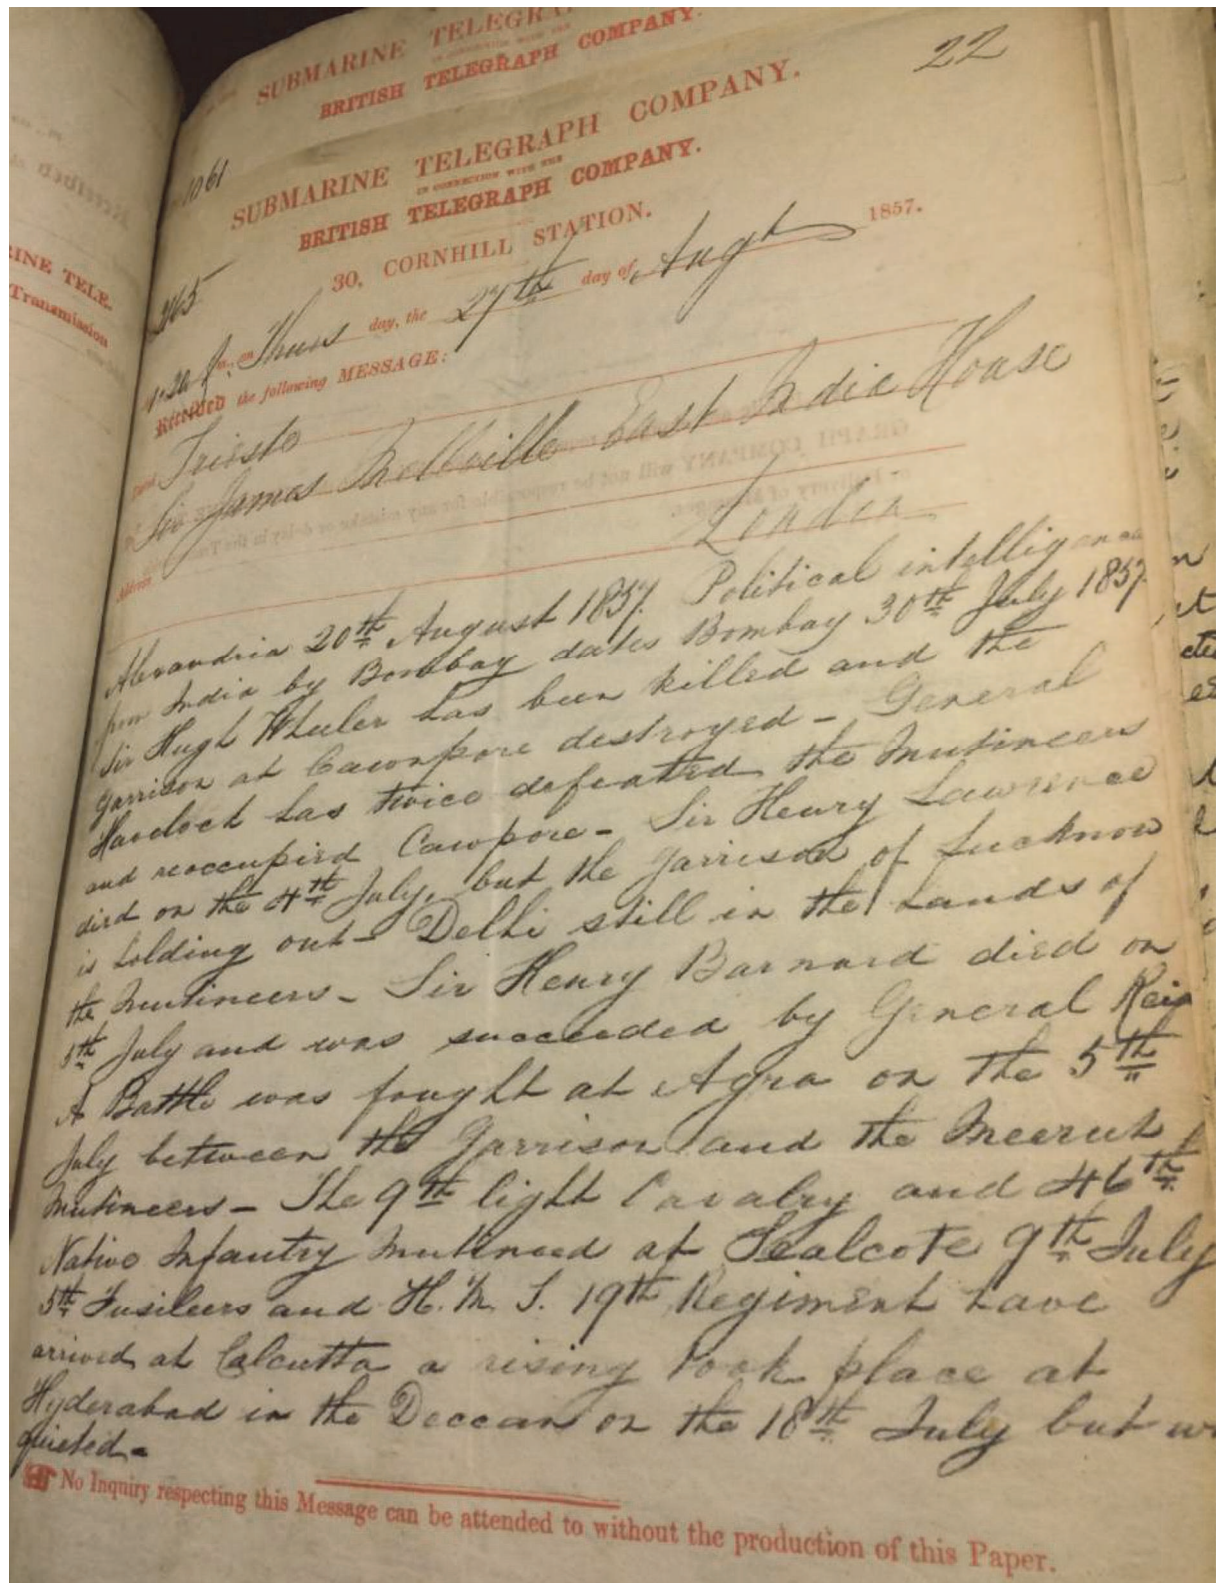 SUBMARINE TELEGRA
IN CONNECTION WITH THE
BRITISH TELEGRAPH COMPANY.
22
1061
SUBMARINE TELEGRAPH COMPANY.
IN CONNECTION WITH THE
BRITISH TELEGRAPH COMPANY.
30, CORNHILL STATION.
265
on Thurs day, the 27th day of Augt 1857.
Received the following MESSAGE:
Trieste
Sir James Mellville East India House
Address London
Alexandria 20th August 1857. Political intelligence
from India by Bombay dates Bombay 30th July 1857
Sir Hugh Wheler has been killed and the
garrison at Cawnpore destroyed - General
Havelock has twice defeated the Mutineers
and reoccupied Cawpore - Sir Henry Lawrence
died on the 4th July, but the garrison of Lucknow
is holding out - Delhi still in the hands of
the Mutineers - Sir Henry Barnard died on
5th July and was succeeded by General Reid
A Battle was fought at Agra on the 5th
July between the Garrison and the Meerut
Mutineers - The 9th light Cavalry and 46th
Native Infantry mutined at Sealcote 9th July
5th Fusileers and H. M. S. 19th Regiment have
arrived at Calcutta a rising took place at
Hyderabad in the Deccan on the 18th July but w
quieted -
No Inquiry respecting this Message can be attended to without the production of this Paper.
INE TELE.
Transmission